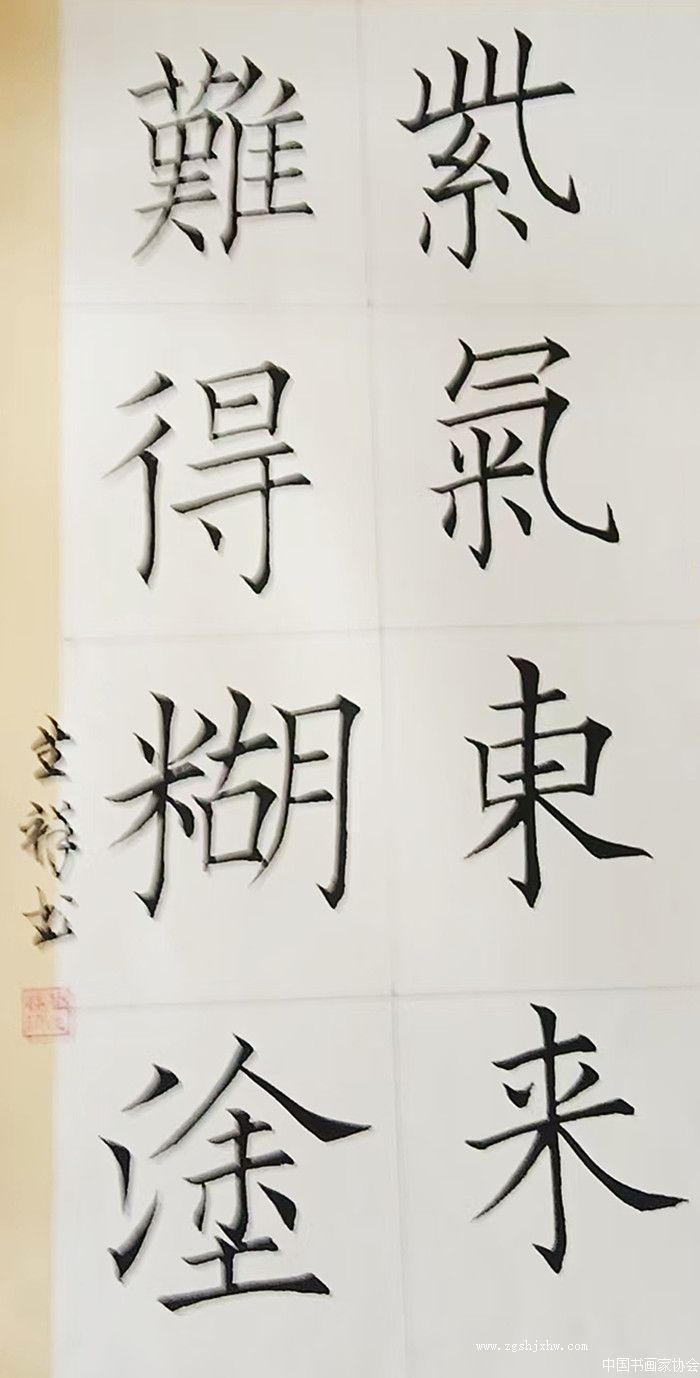 紫氣東来
難得糊塗
生祥书
www.zgshjxhw.com
中国书画家协会